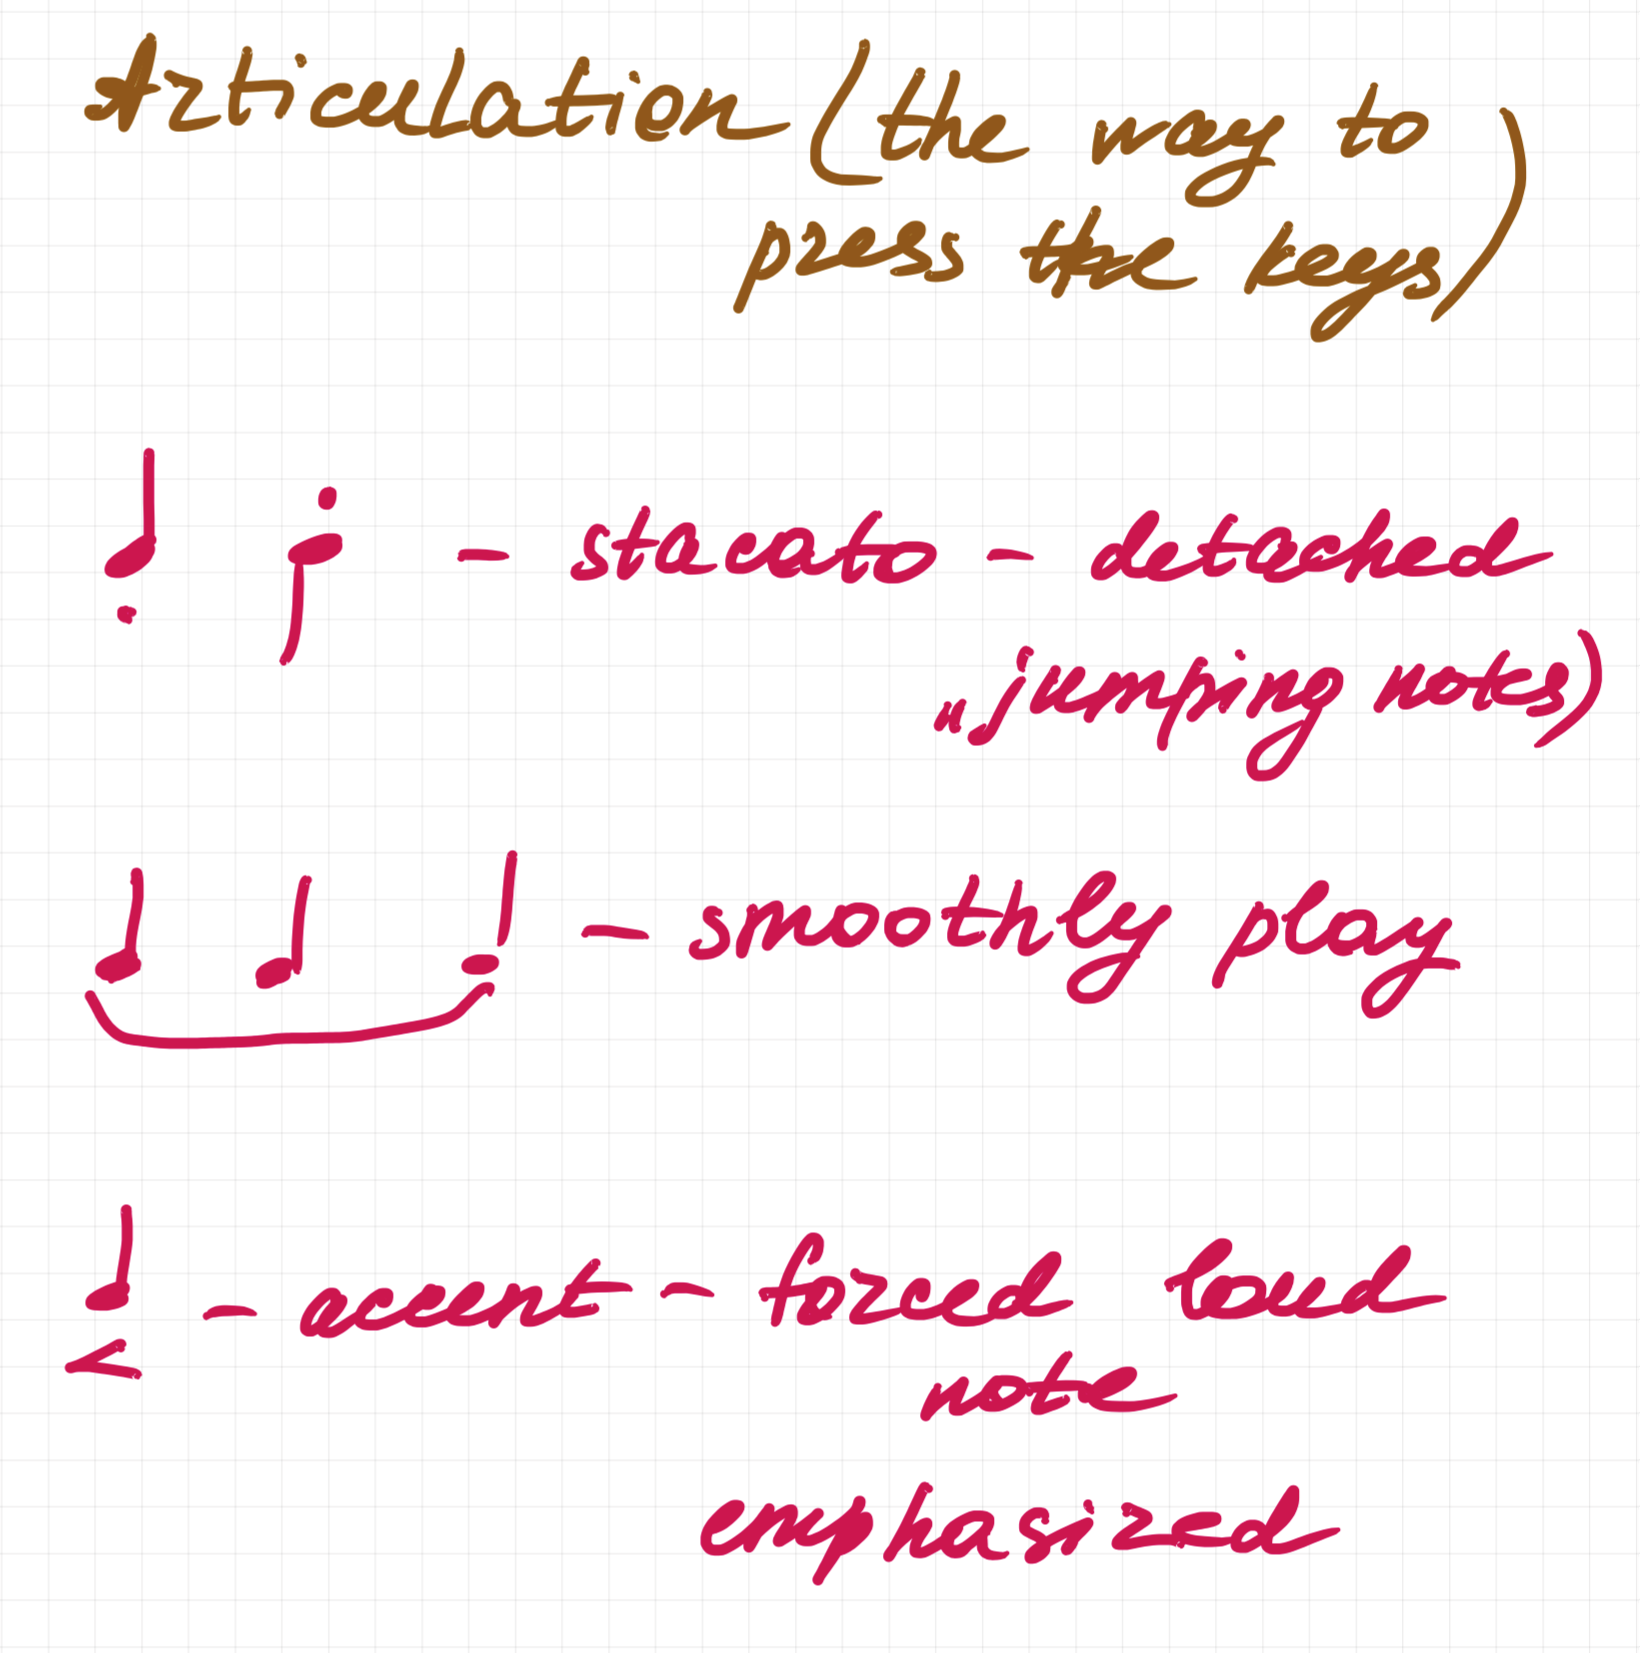 Articulation (the way to
press the keys)
- stacato - detached
„jumping notes)
- smoothly play
- accent - forced loud
note
emphasized